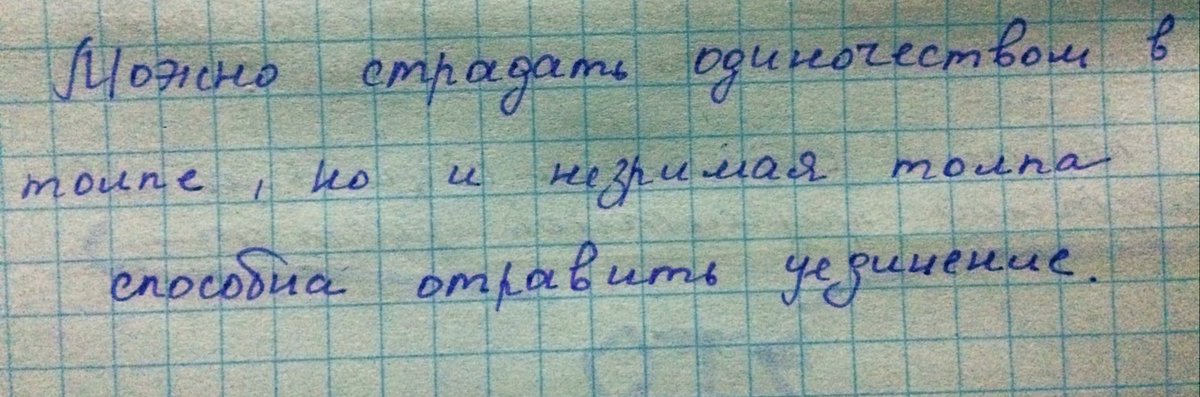 Можно страдать одиночеством в
толпе, но и незримая толпа
способна отравить уединение.